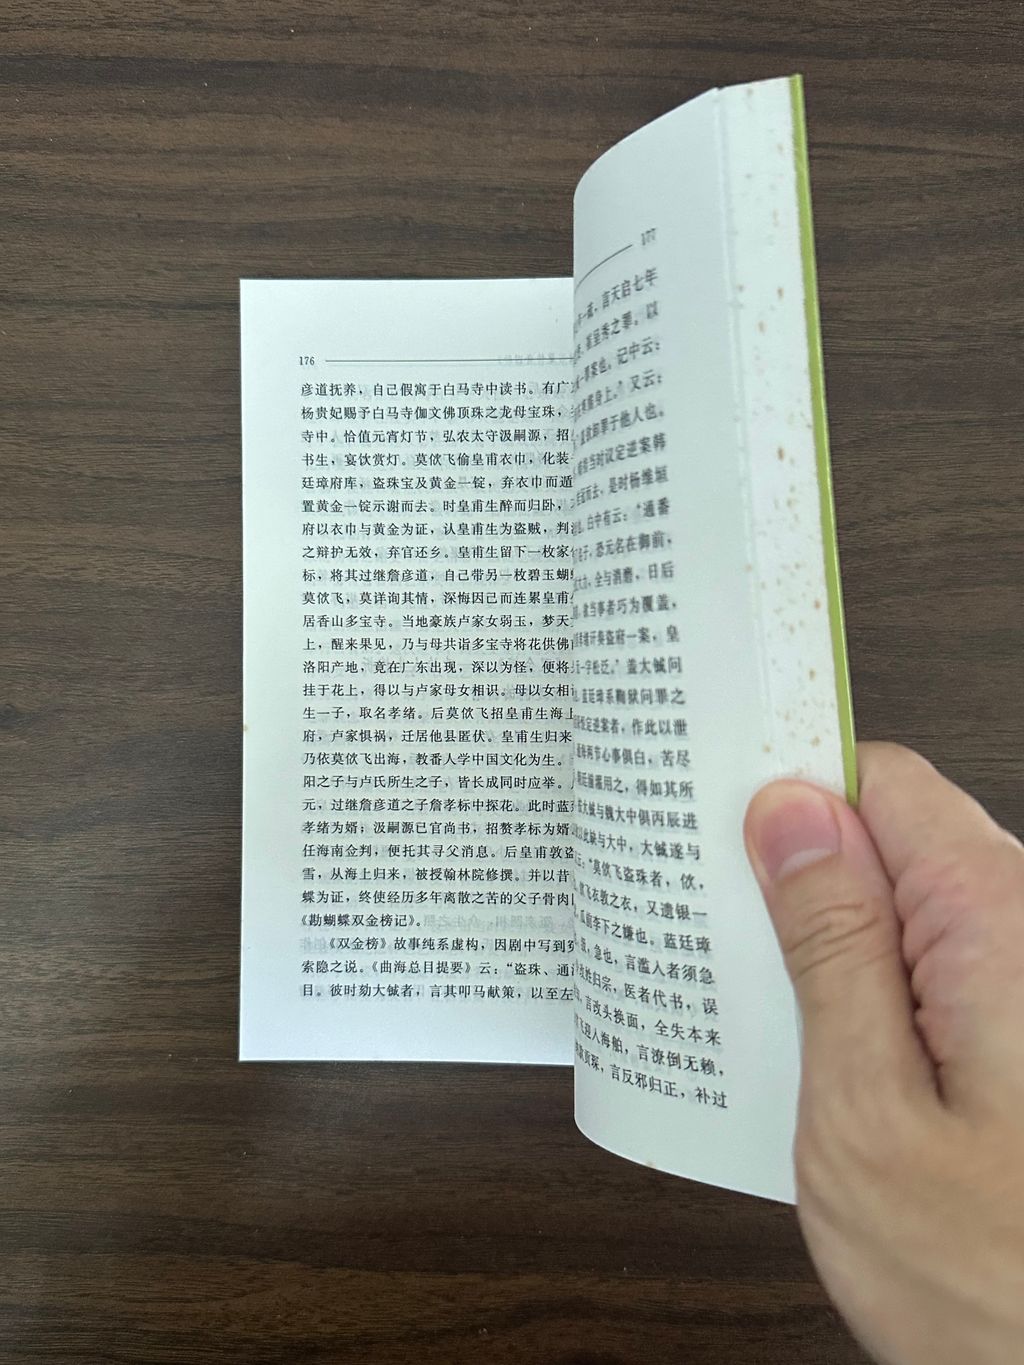 176
彦道抚养，自己假寓于白马寺中读书。有广
杨贵妃赐予白马寺伽文佛顶珠之龙母宝珠，
寺中。恰值元宵灯节，弘农太守汲嗣源，招
书生，宴饮赏灯。莫佽飞偷皇甫衣巾，化装
廷璋府库，盗珠宝及黄金一锭，弃衣巾而遁
置黄金一锭示谢而去。时皇甫生醉而归卧，
府以衣巾与黄金为证，认皇甫生为盗贼，判
之辩护无效，弃官还乡。皇甫生留下一枚家
标，将其过继詹彦道，自己带另一枚碧玉蝴
莫佽飞，莫详询其情，深悔因己而连累皇甫
居香山多宝寺。当地豪族卢家女弱玉，梦天
上，醒来果见，乃与母共诣多宝寺将花供佛
洛阳产地，竟在广东出现，深以为怪，便将
挂于花上，得以与卢家母女相识。母以女相
生一子，取名孝绪。后莫佽飞招皇甫生海上
府，卢家惧祸，迁居他县匿伏。皇甫生归来
乃依莫佽飞出海，教番人学中国文化为生。
阳之子与卢氏所生之子，皆长成同时应举。
元，过继詹彦道之子詹孝标中探花。此时蓝
孝绪为婿；汲嗣源已官尚书，招赘孝标为婿
任海南金判，便托其寻父消息。后皇甫敦盗
雪，从海上归来，被授翰林院修撰。并以昔
蝶为证，终使经历多年离散之苦的父子骨肉
《勘蝴蝶双金榜记》。
《双金榜》故事纯系虚构，因剧中写到
索隐之说。《曲海总目提要》云：“盗珠、通
目。彼时劾大铖者，言其叩马献策，以至左
177
一疏，言天启七年
崔呈秀之罪。以
罪案也。记中云：
身上。”又云：
即罪于他人也。
当时议定逆案韩
而去，是时杨维垣
白中有云：“通番
子，恐元名在御前，
大力，全与消磨，日后
当事者巧为覆盖，
开奏盗府一案，皇
一字松泛。”盖大铖问
蓝廷璋系鞫狱问罪之
定逆案者，作此以泄
两节心事俱白，苦尽
用之，得如其所
大铖与魏大中俱丙辰进
以此缺与大中，大铖遂与
云：“莫佽飞盗珠者，佽，
飞衣敦之衣，又遗银一
瓜前李下之嫌也。蓝廷璋
急也，言滥入者须急
姓归宗，医者代书，误
言改头换面，全失本来
飞迎入海舶，言潦倒无赖，
贡琛，言反邪归正，补过